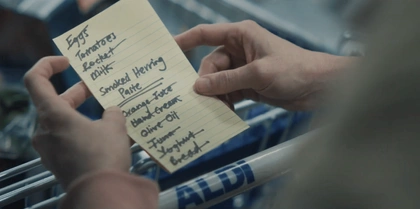 Eggs
Tomatoes
Rocket
Milk
Smoked Herring
Paste
Orange Juice
Hand cream
Olive Oil
Tuna
Yoghurt
Bread
ALDI